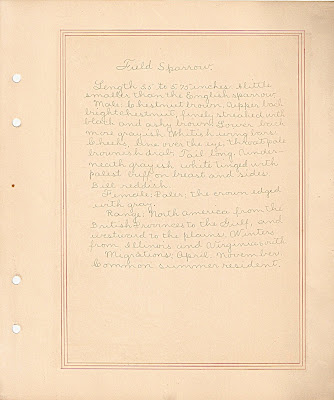 Field Sparrow.
Length 5.5 to 5.75 inches. A little
smaller than the English sparrow.
Male: Chestnut brown. Upper back
bright chestnut, finely streaked with
black and ashy brown. Lower back
more grayish. Whitish wing bars.
Cheeks, line over the eye, throat pale
brownish drab. Tail long. Under-
neath grayish white tinged with
palest buff on breast and sides
Bill reddish.
Female: Paler; the crown edged
with gray.
Range: North America from the
British Provinces to the Gulf, and
westward to the plains. Winters
from Illinois and Virginia south
Migrations: April, November
Common summer resident.